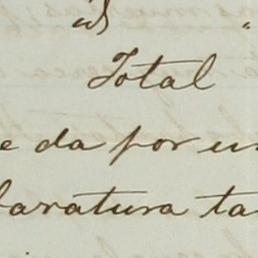 id
Total
e da por un
baratura ta